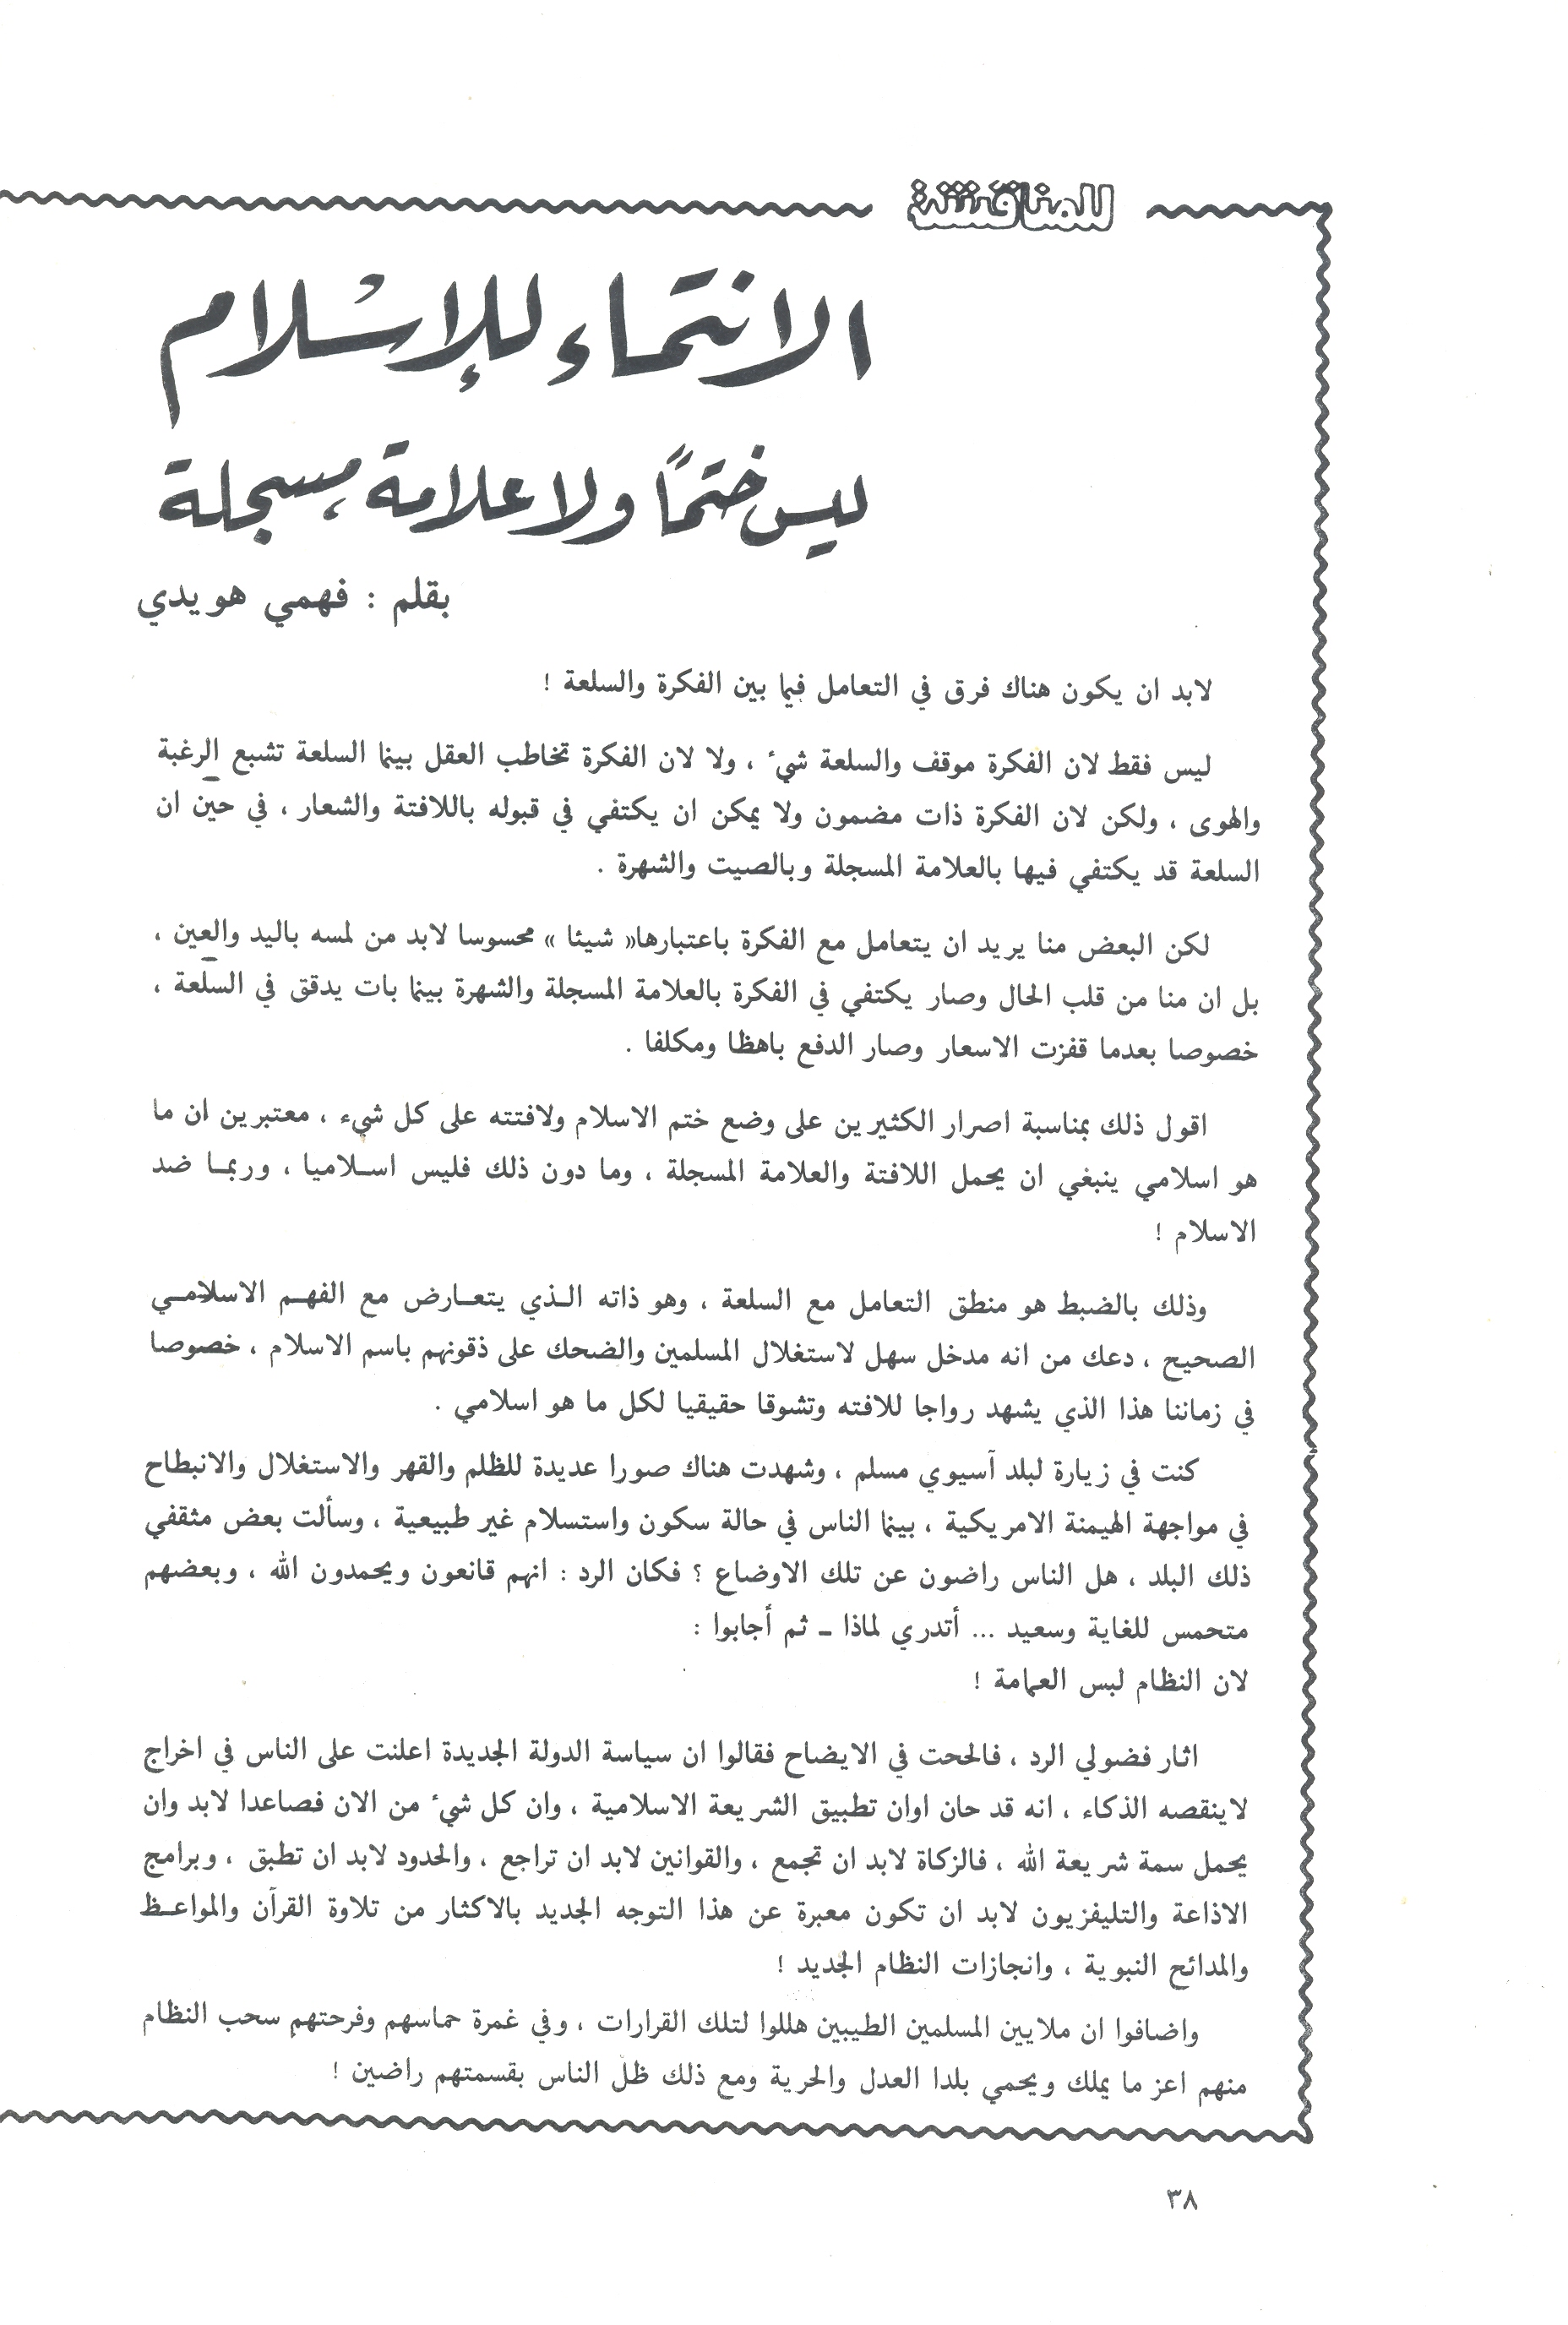 للمناقشة
الانتماء للإسلام
ليس ختمًا ولا علامة مسجلة
بقلم : فهمي هويدي
لابد ان يكون هناك فرق في التعامل فيما بين الفكرة والسلعة !
ليس فقط لان الفكرة موقف والسلعة شيء ، ولا لان الفكرة تخاطب العقل بينما السلعة تشبع الرغبة
والهوى ، ولكن لان الفكرة ذات مضمون ولا يمكن ان يكتفي في قبوله باللافتة والشعار ، في حين ان
السلعة قد يكتفي فيها بالعلامة المسجلة وبالصيت والشهرة .
لكن البعض منا يريد ان يتعامل مع الفكرة باعتبارها« شيئا » محسوسا لابد من لمسه باليد والعين ،
بل ان منا من قلب الحال وصار يكتفي في الفكرة بالعلامة المسجلة والشهرة بينما بات يدقق في السلعة ،
خصوصا بعدما قفزت الاسعار وصار الدفع باهظا ومكلفا .
اقول ذلك بمناسبة اصرار الكثيرين على وضع ختم الاسلام ولافتته على كل شيء ، معتبرين ان ما
هو اسلامي ينبغي ان يحمل اللافتة والعلامة المسجلة ، وما دون ذلك فليس اسلاميا ، وربما ضد
الاسلام !
وذلك بالضبط هو منطق التعامل مع السلعة ، وهو ذاته الذي يتعارض مع الفهم الاسلامي
الصحيح ، دعك من انه مدخل سهل لاستغلال المسلمين والضحك على ذقونهم باسم الاسلام ، خصوصا
في زماننا هذا الذي يشهد رواجا للافته وتشوقا حقيقيا لكل ما هو اسلامي .
كنت في زيارة لبلد آسيوي مسلم ، وشهدت هناك صورا عديدة للظلم والقهر والاستغلال والانبطاح
في مواجهة الهيمنة الامريكية ، بينما الناس في حالة سكون واستسلام غير طبيعية ، وسألت بعض مثقفي
ذلك البلد ، هل الناس راضون عن تلك الاوضاع ؟ فكان الرد : انهم قانعون ويحمدون الله ، وبعضهم
متحمس للغاية وسعيد ... أتدري لماذا ـ ثم أجابوا :
لان النظام لبس العمامة !
اثار فضولي الرد ، فالححت في الايضاح فقالوا ان سياسة الدولة الجديدة اعلنت على الناس في اخراج
لاينقصه الذكاء ، انه قد حان اوان تطبيق الشريعة الاسلامية ، وان كل شيء من الان فصاعدا لابد وان
يحمل سمة شريعة الله ، فالزكاة لابد ان تجمع ، والقوانين لابد ان تراجع ، والحدود لابد ان تطبق ، وبرامج
الاذاعة والتليفزيون لابد ان تكون معبرة عن هذا التوجه الجديد بالاكثار من تلاوة القرآن والمواعظ
والمدائح النبوية ، وانجازات النظام الجديد !
واضافوا ان ملايين المسلمين الطيبين هللوا لتلك القرارات ، وفي غمرة حماسهم وفرحتهم سحب النظام
منهم اعز ما يملك ويحمي بلدا العدل والحرية ومع ذلك ظل الناس بقسمتهم راضين !
٣٨